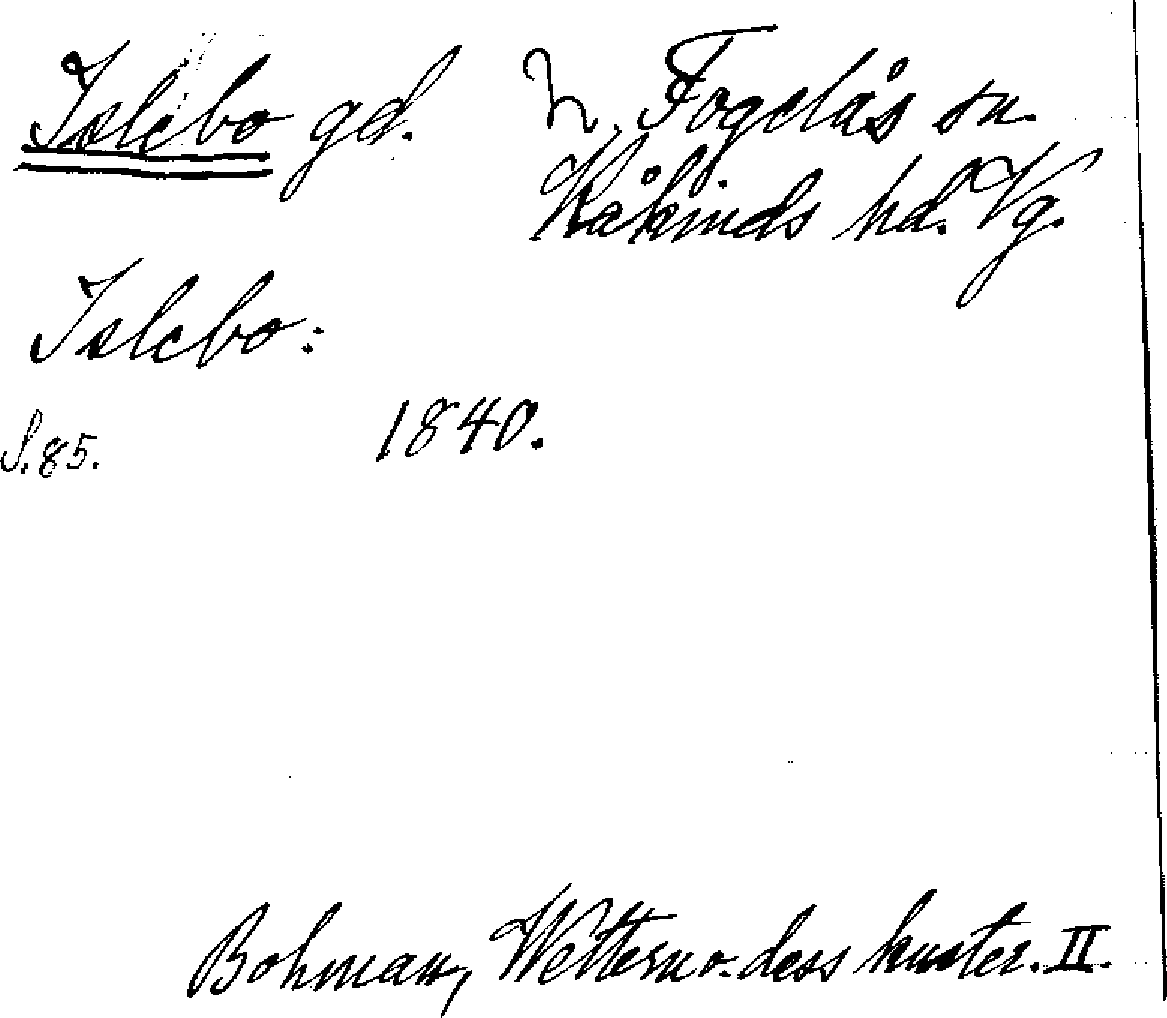 Islebo gd. N. Fogelås sn.
Kåkinds hd. Vg.
Islebo:
S. 85. 1840.
Bohman, Wettern o. dess kuster. II.